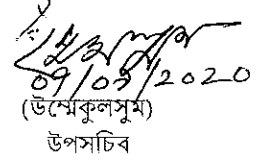 09/03/2020
(উম্মেকুলসুম)
উপসচিব